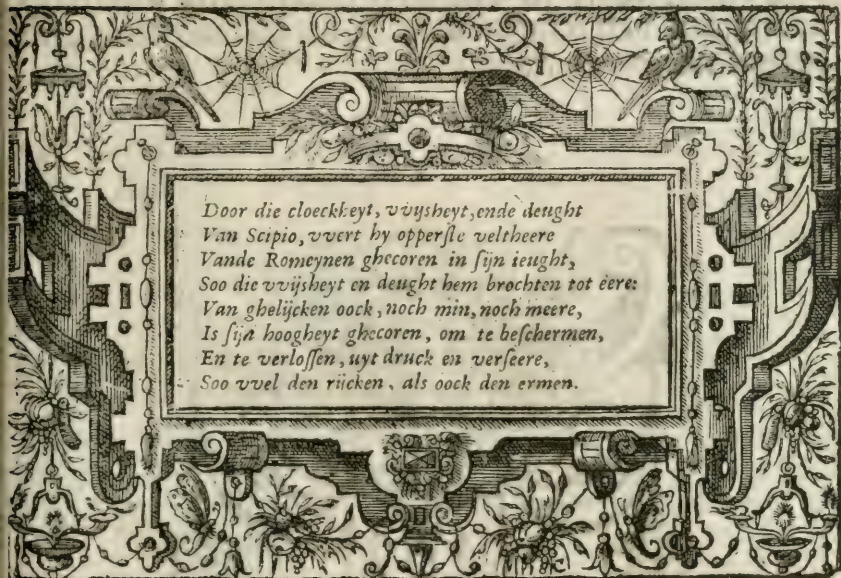 Door die cloeckheyt, vvijsheyt, ende deught
Van Scipio, vvert hy opperste veltheere
Vande Romeynen ghecoren in sijn ieught,
Soo die vvijsheyt en deught hem brochten tot eere:
Van ghelijcken oock, noch min, noch meere,
Is sijn hoogheyt ghecoren, om te beschermen,
En te verlossen, uyt druck en verseere,
Soo vvel den rijcken, als oock den ermen.